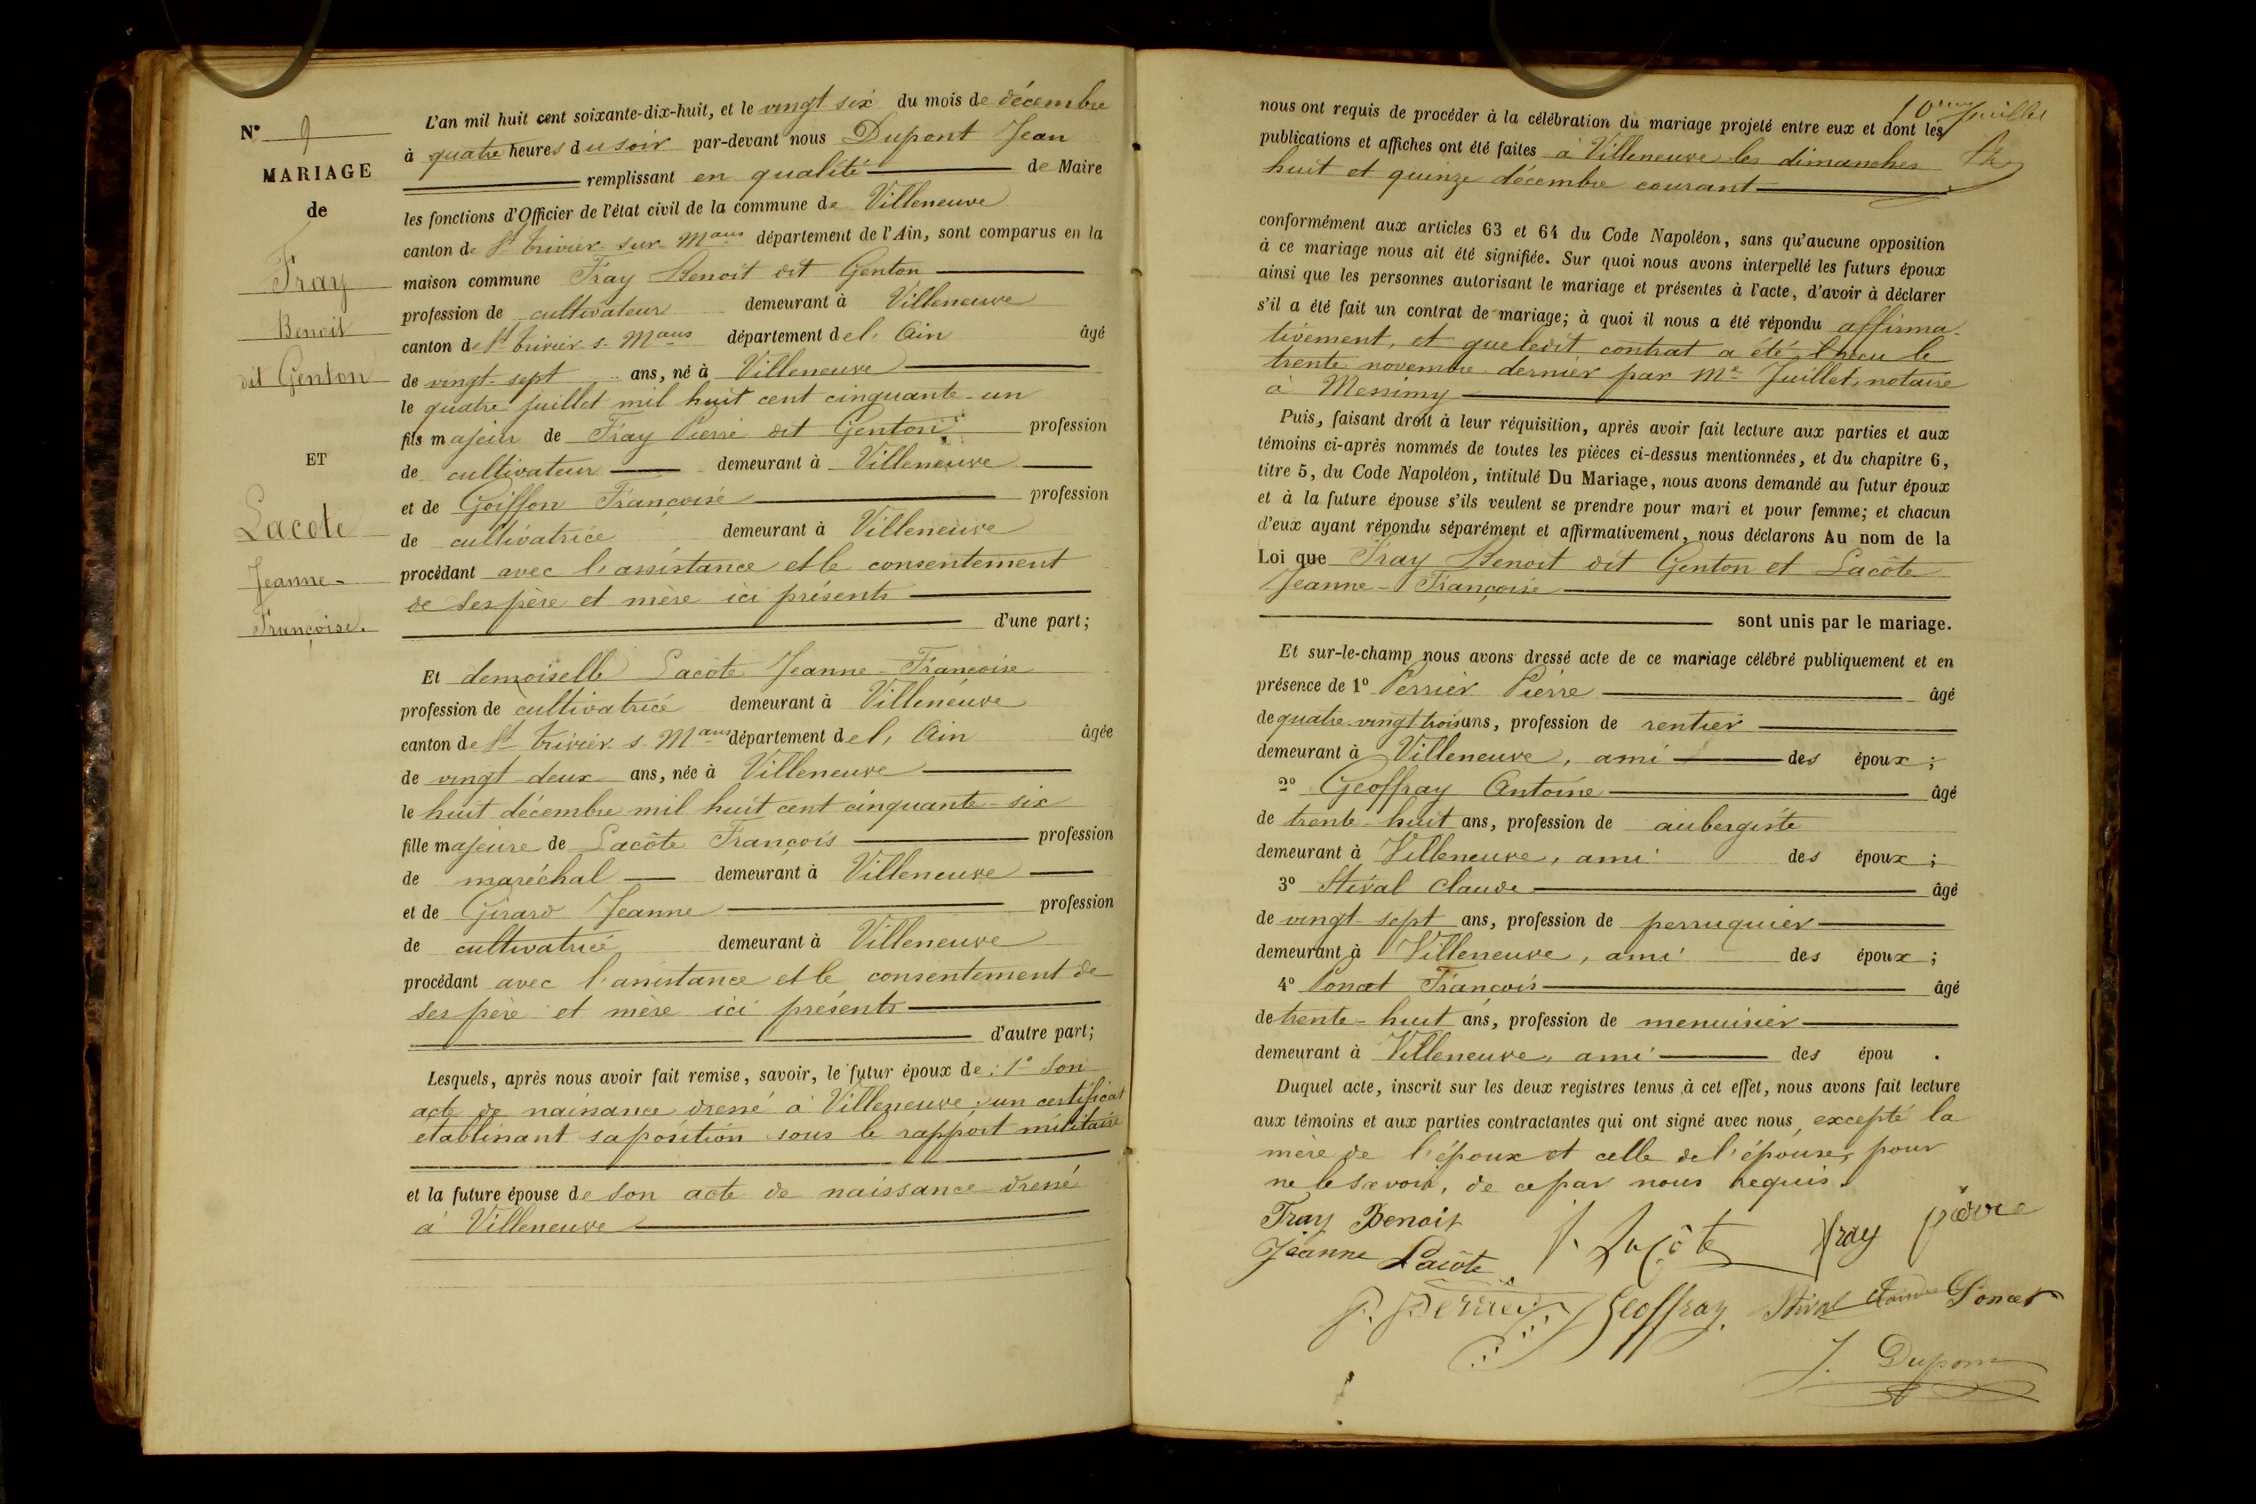 N° 9
MARIAGE
de
Fray
Benoit
dit Genton
ET
Lacote
Jeanne-
Françoise.
L'an mil huit cent soixante-dix-huit, et le vingt six du mois de décembre
à quatre heures du soir par-devant nous Dupont Jean
remplissant en qualité de Maire
les fonctions d'Officier de l'état civil de la commune de Villeneuve
canton de St trivier-sur-Mans département de l'Ain, sont comparus en la
maison commune Fray Benoit dit Genton
profession de cultivateur demeurant à Villeneuve
canton de St trivier s. Mans département de l'Ain âgé
de vingt-sept ans, né à Villeneuve
le quatre juillet mil huit cent cinquante-un
fils majeur de Fray Pierre dit Genton profession
de cultivateur demeurant à Villeneuve
et de Goiffon Françoise profession
de cultivatrice demeurant à Villeneuve
procédant avec l'assistance et le consentement
de ses père et mère ici présents
d'une part;
Et demoiselle Lacôte Jeanne-Françoise
profession de cultivatrice demeurant à Villeneuve
canton de St trivier s. Mans département de l'Ain âgée
de vingt-deux ans, née à Villeneuve
le huit décembre mil huit cent cinquante-six
fille majeure de Lacôte François profession
de maréchal demeurant à Villeneuve
et de Girard Jeanne profession
de cultivatrice demeurant à Villeneuve
procédant avec l'assistance et le consentement de
ses père et mère ici présents
d'autre part;
Lesquels, après nous avoir fait remise, savoir, le futur époux de: 1° Son
acte de naissance dressé à Villeneuve; un certificat
établissant sa position sous le rapport militaire
et la future épouse de son acte de naissance dressé
à Villeneuve
10ème feuillet
nous ont requis de procéder à la célébration du mariage projeté entre eux et dont les
publications et affiches ont été faites à Villeneuve les dimanches
huit et quinze décembre courant
conformément aux articles 63 et 64 du Code Napoléon, sans qu'aucune opposition
à ce mariage nous ait été signifiée. Sur quoi nous avons interpellé les futurs époux
ainsi que les personnes autorisant le mariage et présentes à l'acte, d'avoir à déclarer
s'il a été fait un contrat de mariage; à quoi il nous a été répondu affirma-
tivement, et que ledit contrat a été reçu le
trente novembre dernier par Me Juillet, notaire
à Messimy
Puis, faisant droit à leur réquisition, après avoir fait lecture aux parties et aux
témoins ci-après nommés de toutes les pièces ci-dessus mentionnées, et du chapitre 6,
titre 5, du Code Napoléon, intitulé Du Mariage, nous avons demandé au futur époux
et à la future épouse s'ils veulent se prendre pour mari et pour femme; et chacun
d'eux ayant répondu séparément et affirmativement, nous déclarons Au nom de la
Loi que Fray Benoit dit Genton et Lacôte
Jeanne-Françoise
sont unis par le mariage.
Et sur-le-champ nous avons dressé acte de ce mariage célébré publiquement et en
présence de 1° Perrier Pierre âgé
de quatre-vingt trois ans, profession de rentier
demeurant à Villeneuve, ami des époux;
2° Geoffray Antoine âgé
de trente-huit ans, profession de aubergiste
demeurant à Villeneuve, ami des époux;
3° Stival Claude âgé
de vingt-sept ans, profession de perruquier
demeurant à Villeneuve, ami des époux;
4° Poncet François âgé
de trente-huit ans, profession de menuisier
demeurant à Villeneuve, ami des épou .
Duquel acte, inscrit sur les deux registres tenus à cet effet, nous avons fait lecture
aux témoins et aux parties contractantes qui ont signé avec nous, excepté la
mère de l'époux et celle de l'épouse, pour
ne le savoir, de ce par nous requis.
Fray Benoit F. Lacôte Fray pierre
Jeanne Lacôte
P. Perrier Geoffray Stival Claude Poncet
J. Dupont